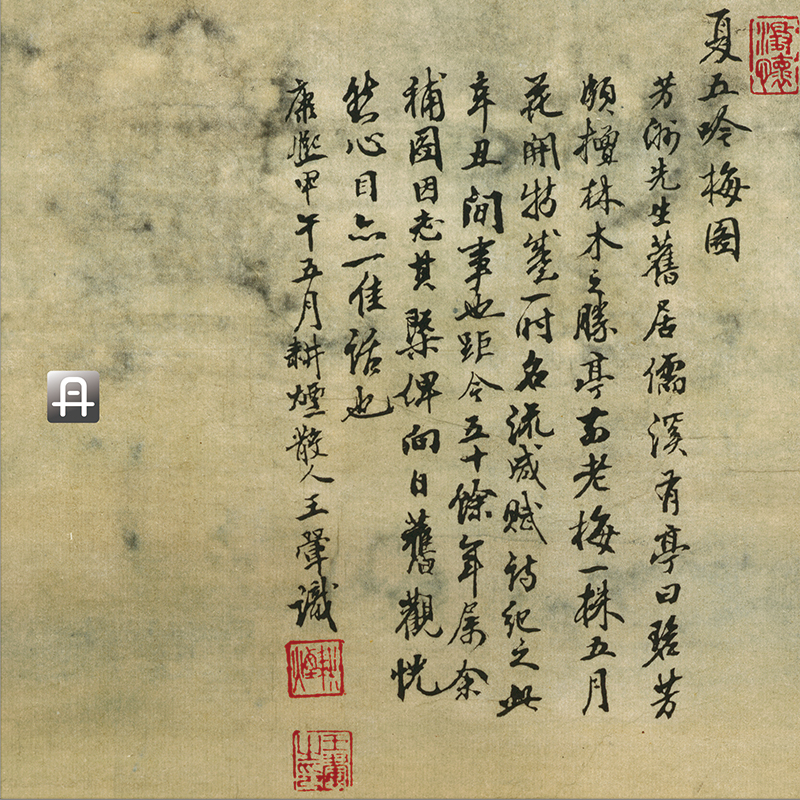 夏五吟梅圖
芳洲先生舊居儒溪有亭曰碧芳
頗擅林木之勝亭前老梅一株五月
花開特盛一時名流咸賦詩紀之此
辛丑間事也距今五十餘年屬余
補圖因老其槩俾向日舊觀恍
然心目亦一佳話也
康熙甲午五月耕煙散人王翬識
澂懷
耕煙
王翬之印